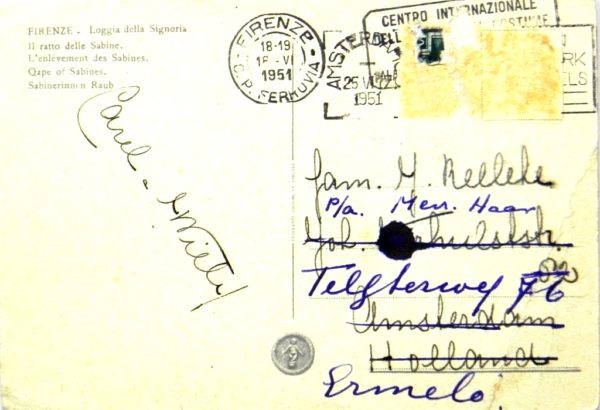 FIRENZE - Loggia della Signoria
Il ratto delle Sabine.
L'enlèvement des Sabines.
Qape of Sabines.
Sabinerinnen Raub
FIRENZE
18-19
1951
C.P. FERROVIA
CENTRO INTERNAZIONALE
DELL COSTUME
AMSTERDAM
25 VI
1951
RK
ELS
Carel
Fam. J.
P/a. Mevr. Haar
Joh. Verhulststr.
Telgterweg 76
Amsterdam
Holland
Ermelo